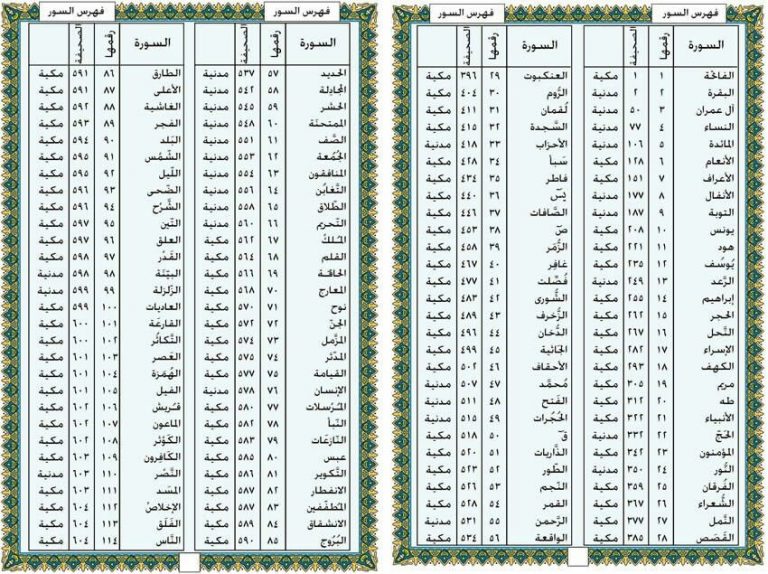 فهرس السور
فهرس السور
السورة رقمها الصحيفة
الفاتحة ١ ١ مكية
البقرة ٢ ٢ مدنية
آل عمران ٣ ٥٠ مدنية
النساء ٤ ٧٧ مدنية
المائدة ٥ ١٠٦ مدنية
الأنعام ٦ ١٢٨ مكية
الأعراف ٧ ١٥١ مكية
الأنفال ٨ ١٧٧ مدنية
التوبة ٩ ١٨٧ مدنية
يونس ١٠ ٢٠٨ مكية
هود ١١ ٢٢١ مكية
يُوسُف ١٢ ٢٣٥ مكية
الرَّعد ١٣ ٢٤٩ مدنية
إبراهيم ١٤ ٢٥٥ مكية
الحجر ١٥ ٢٦٢ مكية
النَّحل ١٦ ٢٦٧ مكية
الإسراء ١٧ ٢٨٢ مكية
الكهف ١٨ ٢٩٣ مكية
مريم ١٩ ٣٠٥ مكية
طه ٢٠ ٣١٢ مكية
الأنبياء ٢١ ٣٢٢ مكية
الحَجّ ٢٢ ٣٣٢ مدنية
المؤمنون ٢٣ ٣٤٢ مكية
النُّور ٢٤ ٣٥٠ مدنية
الفُرقان ٢٥ ٣٥٩ مكية
الشُّعراء ٢٦ ٣٦٧ مكية
النَّمل ٢٧ ٣٧٧ مكية
القَصَص ٢٨ ٣٨٥ مكية
السورة رقمها الصحيفة
العنكبوت ٢٩ ٣٩٦ مكية
الرُّوم ٣٠ ٤٠٤ مكية
لُقمان ٣١ ٤١١ مكية
السَّجدة ٣٢ ٤١٥ مكية
الأحزاب ٣٣ ٤١٨ مدنية
سَبأ ٣٤ ٤٢٨ مكية
فاطر ٣٥ ٤٣٤ مكية
يسٓ ٣٦ ٤٤٠ مكية
الصَّافات ٣٧ ٤٤٦ مكية
صٓ ٣٨ ٤٥٣ مكية
الزُّمَر ٣٩ ٤٥٨ مكية
غافِر ٤٠ ٤٦٧ مكية
فُصِّلت ٤١ ٤٧٧ مكية
الشُّورى ٤٢ ٤٨٣ مكية
الزُّخرف ٤٣ ٤٨٩ مكية
الدُّخان ٤٤ ٤٩٦ مكية
الجاثية ٤٥ ٤٩٩ مكية
الأحقاف ٤٦ ٥٠٢ مكية
مُحمَّد ٤٧ ٥٠٧ مدنية
الفَتح ٤٨ ٥١١ مدنية
الحُجُرات ٤٩ ٥١٥ مدنية
قٓ ٥٠ ٥١٨ مكية
الذَّاريات ٥١ ٥٢٠ مكية
الطُّور ٥٢ ٥٢٣ مكية
النَّجم ٥٣ ٥٢٦ مكية
القمر ٥٤ ٥٢٨ مكية
الرَّحمن ٥٥ ٥٣١ مدنية
الواقعة ٥٦ ٥٣٤ مكية
فهرس السور
فهرس السور
السورة رقمها الصحيفة
الحديد ٥٧ ٥٣٧ مدنية
المجادِلة ٥٨ ٥٤٢ مدنية
الحشر ٥٩ ٥٤٥ مدنية
الممتحنَة ٦٠ ٥٤٨ مدنية
الصَّف ٦١ ٥٥١ مدنية
الجُمُعة ٦٢ ٥٥٣ مدنية
المنافقون ٦٣ ٥٥٤ مدنية
التَّغابُن ٦٤ ٥٥٦ مدنية
الطَّلاق ٦٥ ٥٥٨ مدنية
التَّحريم ٦٦ ٥٦٠ مدنية
المُلكْ ٦٧ ٥٦٢ مكية
القلم ٦٨ ٥٦٤ مكية
الحاقـة ٦٩ ٥٦٦ مكية
المعارج ٧٠ ٥٦٨ مكية
نوح ٧١ ٥٧٠ مكية
الجنّ ٧٢ ٥٧٢ مكية
المزَّمل ٧٣ ٥٧٤ مكية
المدَّثر ٧٤ ٥٧٥ مكية
القيامة ٧٥ ٥٧٧ مكية
الإنسان ٧٦ ٥٧٨ مدنية
المُرسَلات ٧٧ ٥٨٠ مكية
النَّبأ ٧٨ ٥٨٢ مكية
النَّازعَات ٧٩ ٥٨٣ مكية
عبس ٨٠ ٥٨٥ مكية
التَّكوير ٨١ ٥٨٦ مكية
الانفطار ٨٢ ٥٨٧ مكية
المطفِّفين ٨٣ ٥٨٧ مكية
الانشقاق ٨٤ ٥٨٩ مكية
البُرُوج ٨٥ ٥٩٠ مكية
السورة رقمها الصحيفة
الطارق ٨٦ ٥٩١ مكية
الأعلى ٨٧ ٥٩١ مكية
الغاشية ٨٨ ٥٩٢ مكية
الفجر ٨٩ ٥٩٣ مكية
البَلد ٩٠ ٥٩٤ مكية
الشَّمْس ٩١ ٥٩٥ مكية
اللّيل ٩٢ ٥٩٥ مكية
الضّحى ٩٣ ٥٩٦ مكية
الشَّرْح ٩٤ ٥٩٦ مكية
التّين ٩٥ ٥٩٧ مكية
العلق ٩٦ ٥٩٧ مكية
القَدْر ٩٧ ٥٩٨ مكية
البيّنَة ٩٨ ٥٩٨ مدنية
الزّلزلة ٩٩ ٥٩٩ مدنية
العاديات ١٠٠ ٥٩٩ مكية
القارعَة ١٠١ ٦٠٠ مكية
التَّكاثُر ١٠٢ ٦٠٠ مكية
العَصر ١٠٣ ٦٠١ مكية
الهُمَزة ١٠٤ ٦٠١ مكية
الفيل ١٠٥ ٦٠١ مكية
قُرَيش ١٠٦ ٦٠٢ مكية
الماعون ١٠٧ ٦٠٢ مكية
الكَوْثر ١٠٨ ٦٠٢ مكية
الكَافِرون ١٠٩ ٦٠٣ مكية
النَّصْر ١١٠ ٦٠٣ مدنية
المَسَد ١١١ ٦٠٣ مكية
الإخلاصْ ١١٢ ٦٠٤ مكية
الفَلَق ١١٣ ٦٠٤ مكية
النَّاس ١١٤ ٦٠٤ مكية